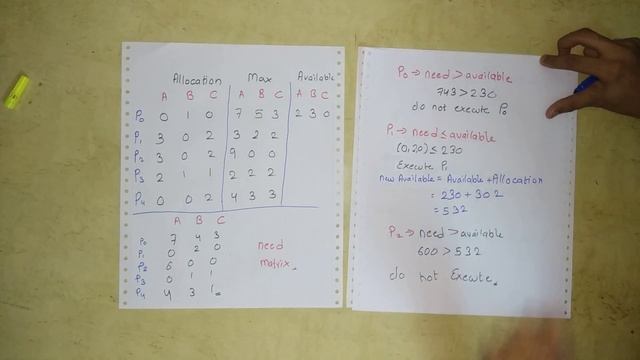 Allocation Max Available
A B C A B C A B C
P0 0 1 0 7 5 3 2 3 0
P1 3 0 2 3 2 2
P2 3 0 2 9 0 0
P3 2 1 1 2 2 2
P4 0 0 2 4 3 3
A B C
P0 7 4 3
P1 0 2 0
P2 6 0 0
P3 0 1 1
P4 4 3 1
need
matrix
P0 → need > available
743 > 230
do not execute P0
P1 → need ≤ available
(0,20) ≤ 230
Execute P1
new Available = Available + Allocation
= 230 + 302
= 532
P2 → need > available
600 > 532
do not Execute